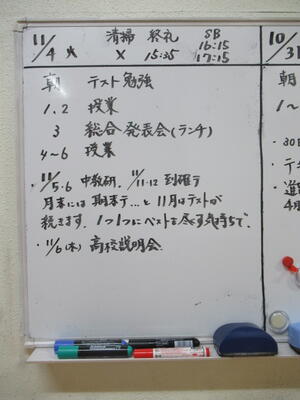 11/4 火 清掃 × 終礼 15:35 SB 16:15 17:15
朝 テスト勉強
1.2 授業
3 総合 発表会(ランチ)
4~6 授業
11/5.6 中教研. 11/11-12 到確テ
月末には期末テ...と11月はテストが
続きます. 1つ1つにベストを尽くす気持ちで.
・11/6(木) 高校説明会.
10/31
朝
1~
・30
・テ
・進
4月